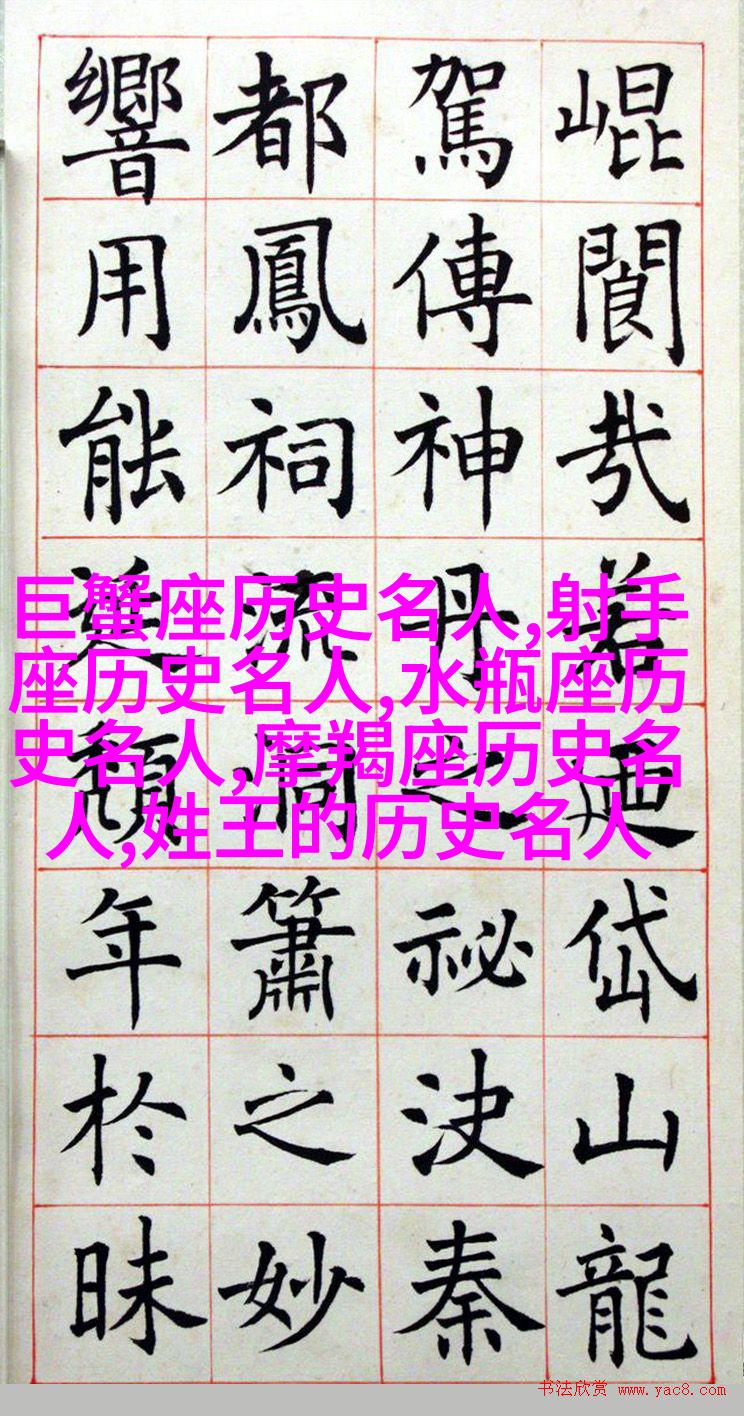 崐閬㢤若迺岱山龍
駕傳神丹之祕決秦
都鳳祠流洞簫之妙
響用能頹年於昧
巨蟹座历史名人,射手
座历史名人,水瓶座历
史名人,摩羯座历史名
人,姓王的历史名人
书法欣赏 www.yac8.com